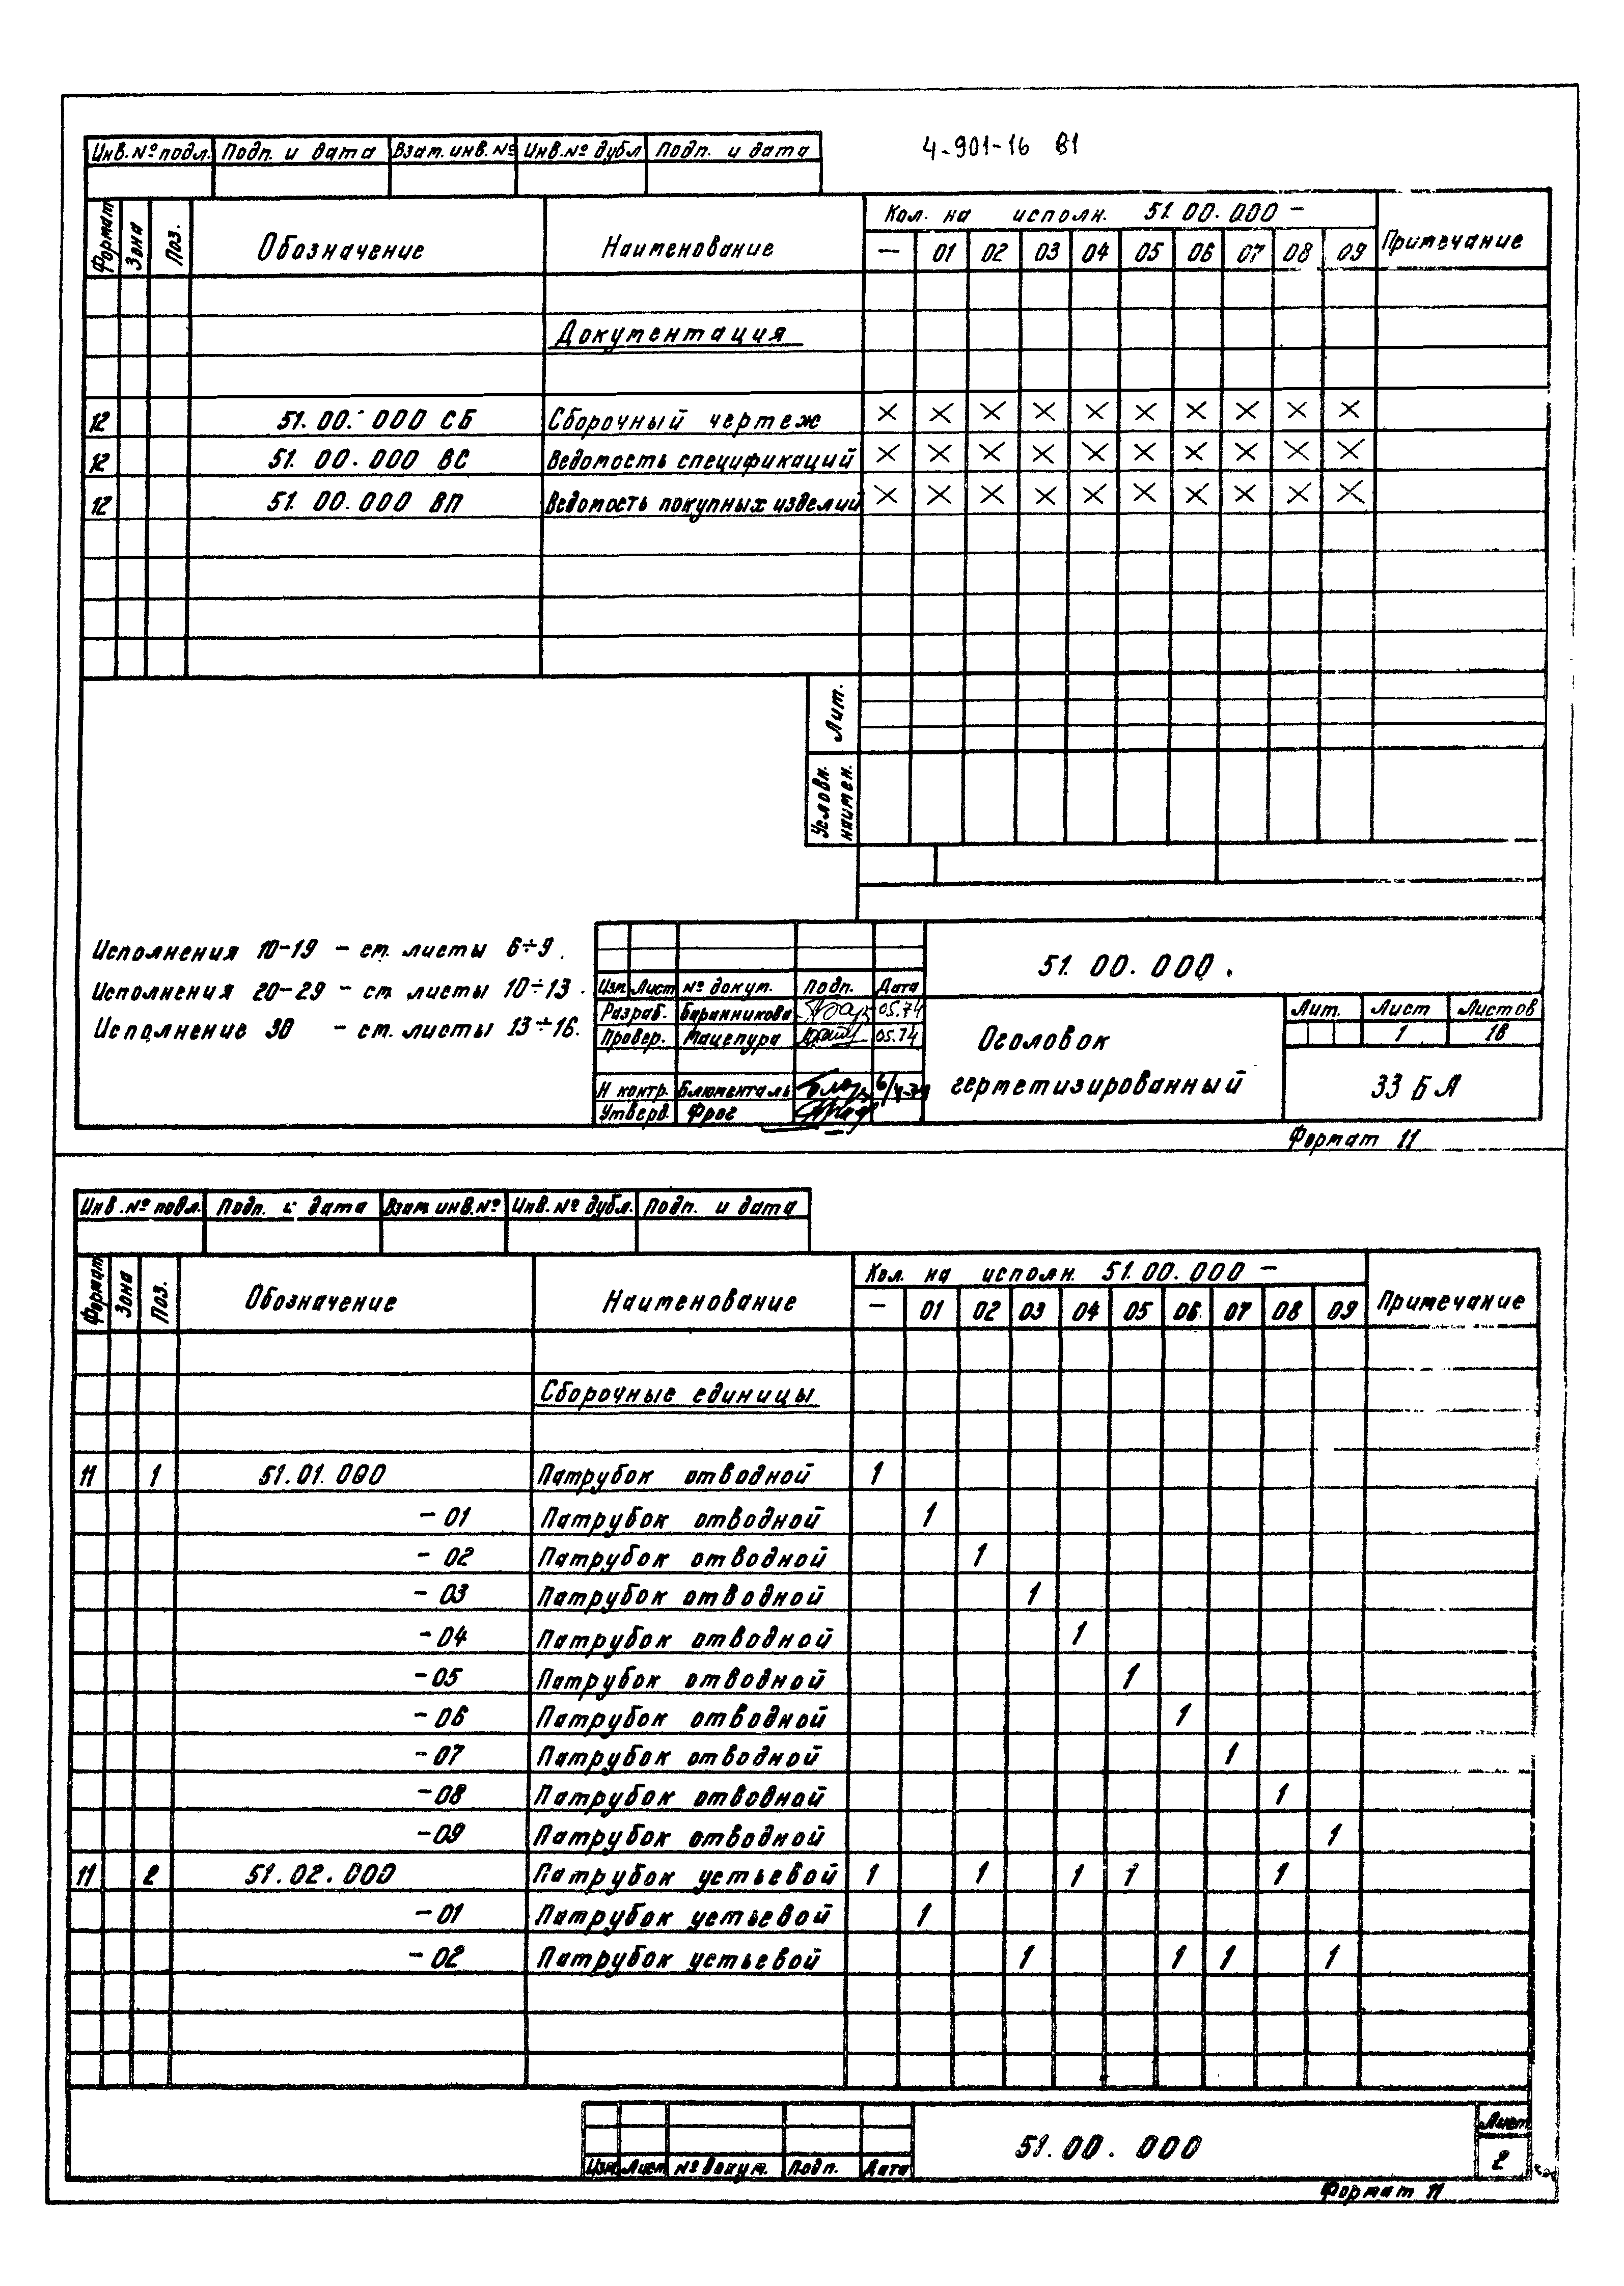 4-901-16 В1
Инв.№подл. Подп. и дата Взам. инв. № Инв.№ дубл Подп. и дата
Формат Зона Поз. Обозначение Наименование Кол. на исполн. 51.00.000 – Примечание
– 01 02 03 04 05 06 07 08 09
Документация
12 51.00.000 СБ Сборочный чертеж × × × × × × × × × ×
12 51.00.000 ВС Ведомость спецификаций × × × × × × × × × ×
12 51.00.000 ВП Ведомость покупных изделий × × × × × × × × × ×
Лит.
Условн. наимен.
Исполнения 10-19 – см. листы 6÷9.
Исполнения 20-29 – см. листы 10÷13.
Исполнение 30 – см. листы 13÷16.
51.00.000.
Изм. Лист № докум. Подп. Дата
Разраб. Баранникова 05.74
Провер. Мацепура 05.74
Н контр. Блюменталь
Утверд. Фрог
Оголовок
герметизированный
Лит. Лист Листов
1 18
33 БА
Формат 11
Инв.№ подл. Подп. и дата Взам. инв.№ Инв.№ дубл. Подп. и дата
Формат Зона Поз. Обозначение Наименование Кол. на исполн. 51.00.000 – Примечание
– 01 02 03 04 05 06 07 08 09
Сборочные единицы
11 1 51.01.000 Патрубок отводной 1
– 01 Патрубок отводной 1
– 02 Патрубок отводной 1
– 03 Патрубок отводной 1
– 04 Патрубок отводной 1
– 05 Патрубок отводной 1
– 06 Патрубок отводной 1
– 07 Патрубок отводной 1
– 08 Патрубок отводной 1
– 09 Патрубок отводной 1
11 2 51.02.000 Патрубок устьевой 1 1 1 1 1
– 01 Патрубок устьевой 1
– 02 Патрубок устьевой 1 1 1 1
51.00.000
Лист
2
Изм. Лист № докум. Подп. Дата
Формат 11